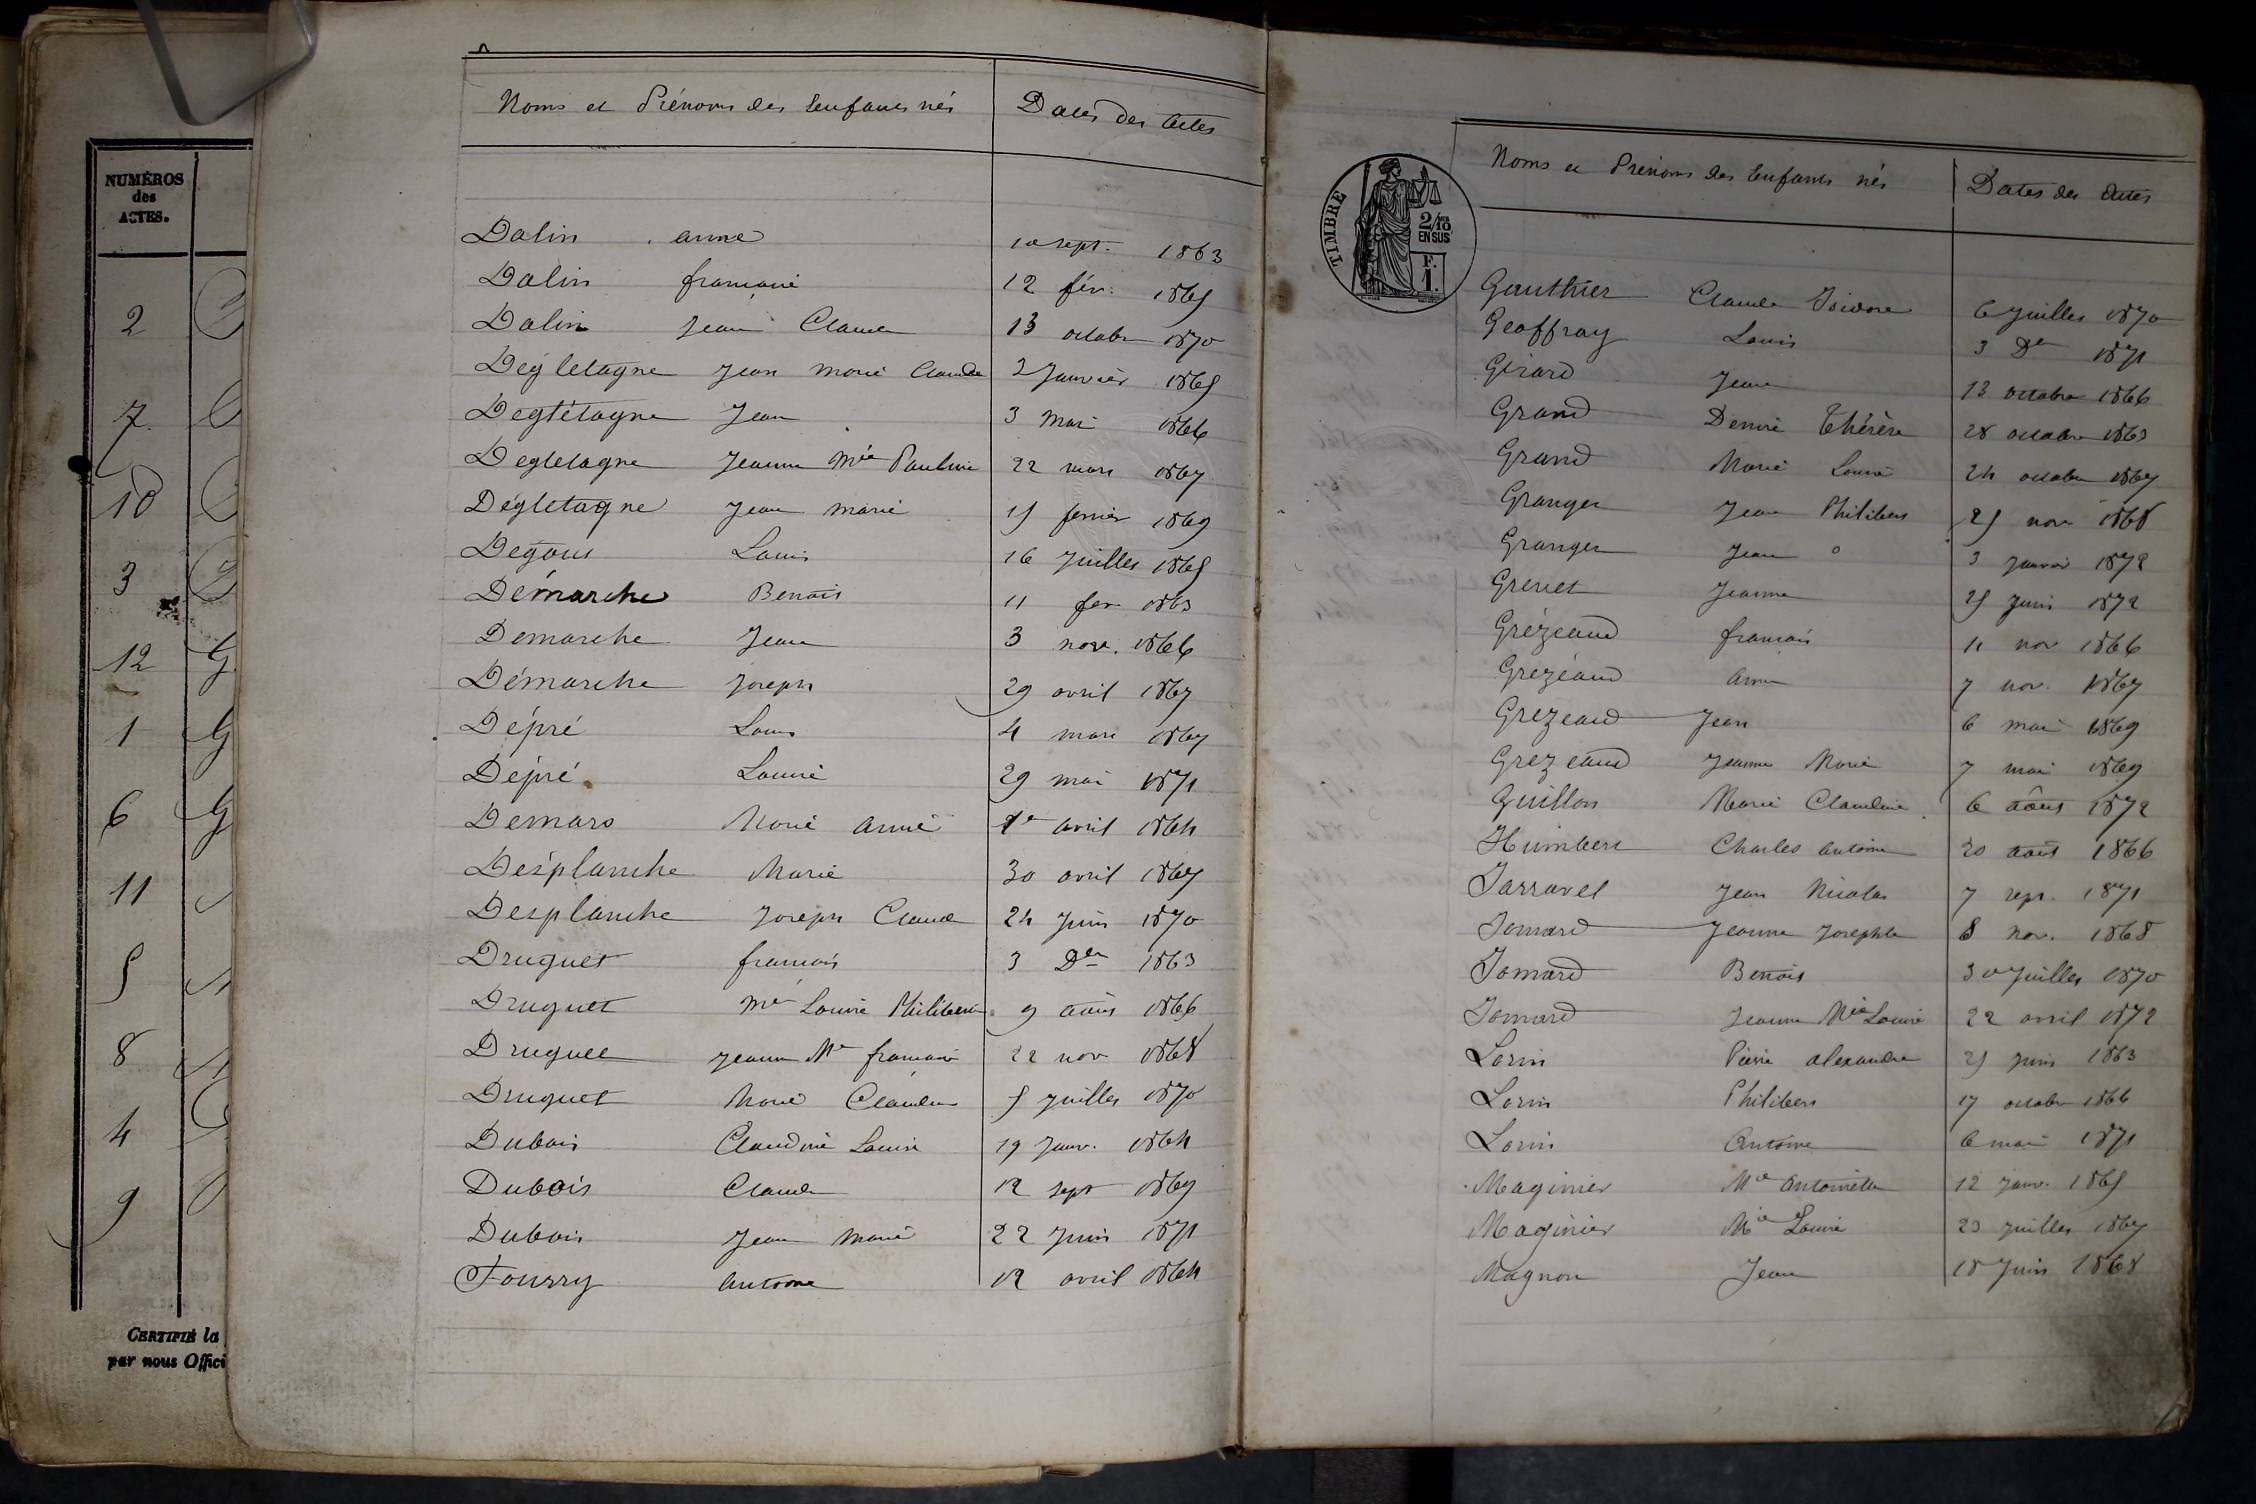 NUMÉROS
des
ACTES.
2
7
10
3
12
1
6
11
5
8
4
9
CERTIFIÉ la
par nous Offici
Noms et Prénoms des Enfants nés Dates des Actes
Dalin anne 10 sept. 1863
Dalin françoise 12 fév. 1865
Dalin Jean Claude 13 octobre 1870
Dégletagne Jean Marie Claude 2 Janvier 1865
Degletagne Jean 3 Mai 1866
Degletagne Jeanne Mie Pauline 22 mars 1867
Dégletagne Jean Marie 15 fevrier 1869
Degous Louis 16 Juillet 1865
Démarche Benoit 11 fev 1863
Demarche Jean 3 nov. 1866
Démarche Joseph 29 avril 1867
Dépré Louis 4 mars 1867
Dépré Louise 29 mai 1871
Demars Marie anne 1er avril 1864
Désplanche Marie 30 avril 1867
Desplanche Joseph Claude 24 Juin 1870
Druguet françois 3 Der 1863
Druguet Mie Louise Philiberte 9 août 1866
Druguet Jeanne Me françoise 22 nov 1868
Druguet Marie Claudine 5 Juillet 1870
Dubois Claudine Louise 19 Janv. 1864
Dubois Claude 12 sept 1869
Dubois Jean Marie 22 Juin 1871
Foussy antoine 12 avril 1864
TIMBRE
2/10
EN SUS
F.
1.
Noms et Prénoms des Enfants nés Dates des Actes
Gauthier Claude Isidore 6 Juillet 1870
Geoffray Louis 3 Der 1871
Girard Jean 13 octobre 1866
Grand Denise Thérèse 28 octobre 1863
Grand Marie Louise 24 octobre 1867
Granger Jean Philibert 25 nov 1868
Granger Jean 3 Janvier 1872
Greuet Jeanne 25 Juin 1872
Grézeaud françois 11 nov 1866
Grezéaud anne 7 nov. 1867
Grezeaud Jean 6 mai 1869
Grezeaud Jeanne Marie 7 mai 1869
Guillon Marie Claudine 6 août 1872
Humbert Charles antoine 20 août 1866
Jarravel Jean Nicolas 7 sept. 1871
Jomard Jeanne Josephte 8 nov. 1868
Jomard Benoit 30 Juillet 1870
Jomard Jeanne Mie Louise 22 avril 1872
Lorin Pierre alexandre 25 Juin 1863
Lorin Philibert 17 octobre 1866
Lorin Antoine 6 mai 1871
Maginier Mie Antoinette 12 janv. 1865
Maginier Mie Louise 23 Juillet 1867
Magnon Jean 18 Juin 1868